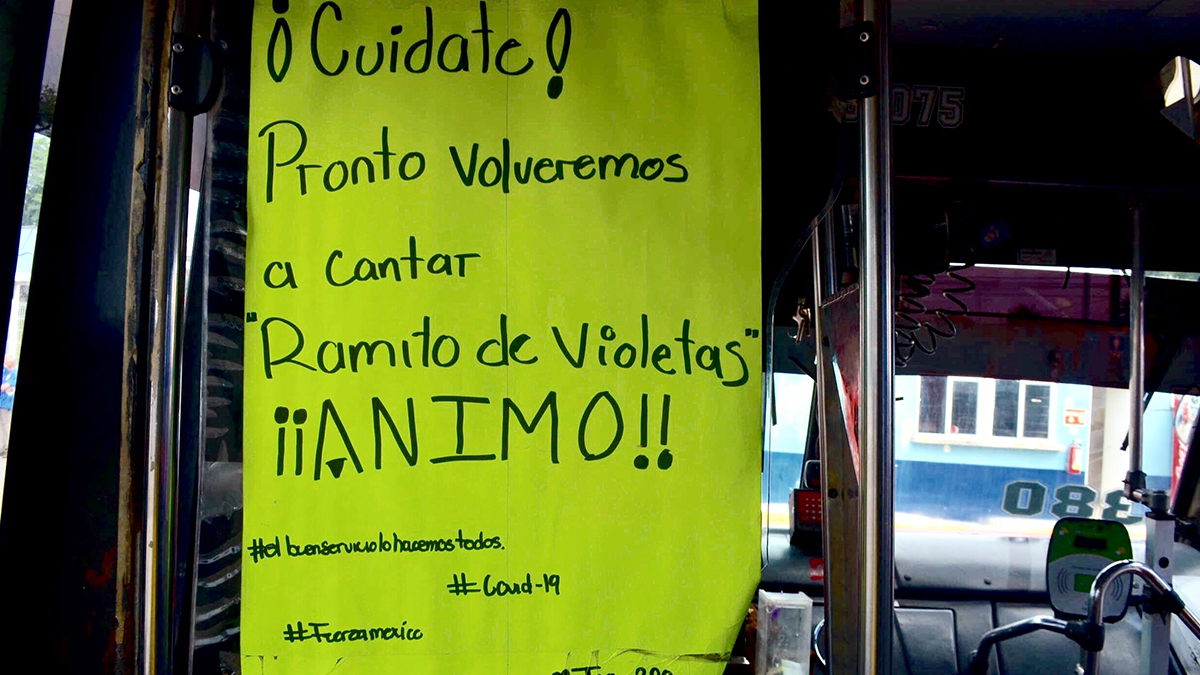 ¡Cuidate!
Pronto volveremos
a cantar
"Ramito de Violetas"
¡¡ANIMO!!
#el buen servicio lo hacemos todos.
#Covid-19
#Fuerzamexico
075
380